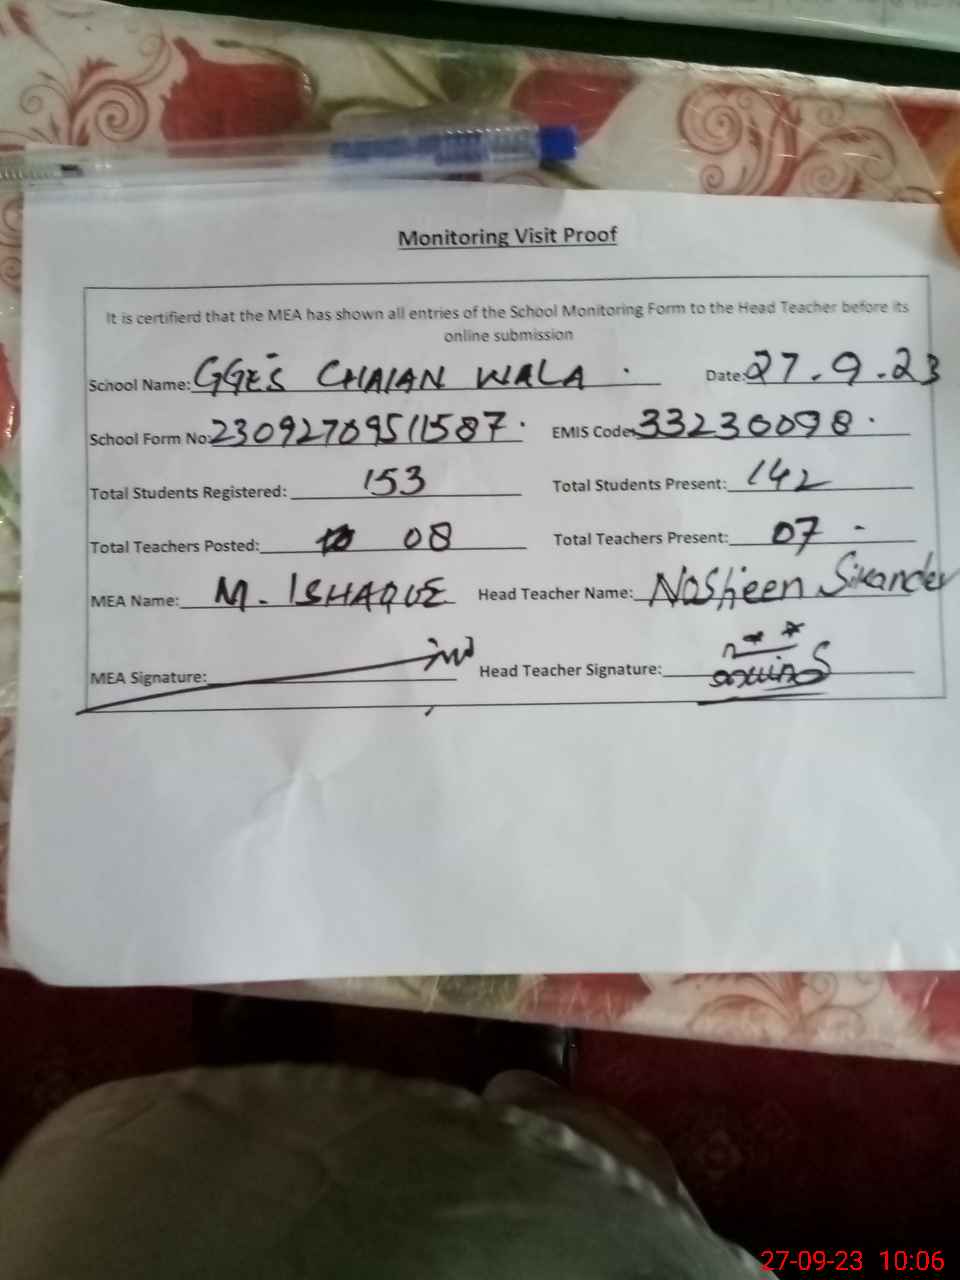 Monitoring Visit Proof
It is certifierd that the MEA has shown all entries of the School Monitoring Form to the Head Teacher before its
online submission
School Name: GGES CHAIAN WALA Date: 27.9.23
School Form No: 23092709511587 EMIS Code: 33230098
Total Students Registered: 153 Total Students Present: 142
Total Teachers Posted: 08 Total Teachers Present: 07
MEA Name: M. ISHAQUE Head Teacher Name: Nosheen Sikander
MEA Signature: Head Teacher Signature:
27-09-23 10:06